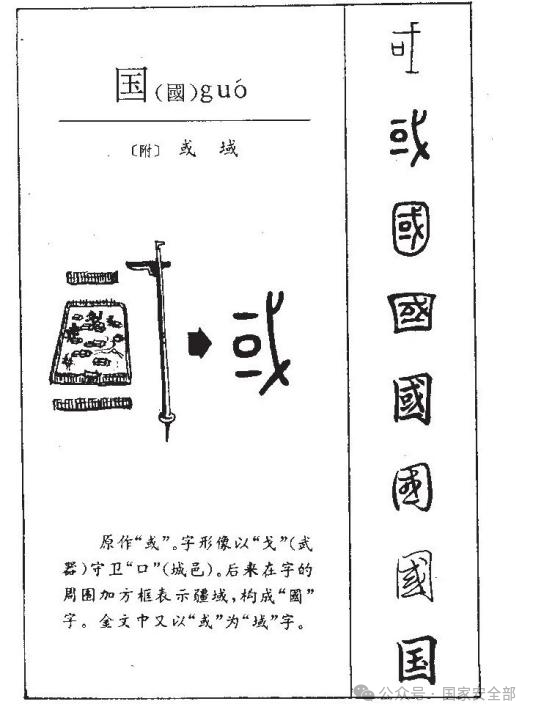 国(國)guó
〔附〕 或 域
原作“或”。字形像以“戈”(武
器)守卫“口”(城邑)。后来在字的
周围加方框表示疆域,构成“國”
字。金文中又以“或”为“域”字。
或
或
國
國
國
國
國
国
公众号·国家安全部